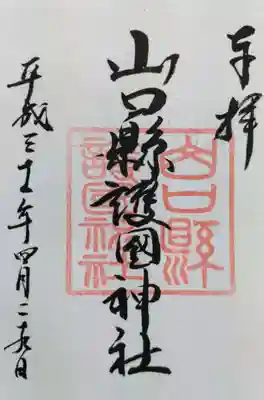 奉拝
山口縣護國神社
平成三十一年四月二十九日
山口縣護国神社